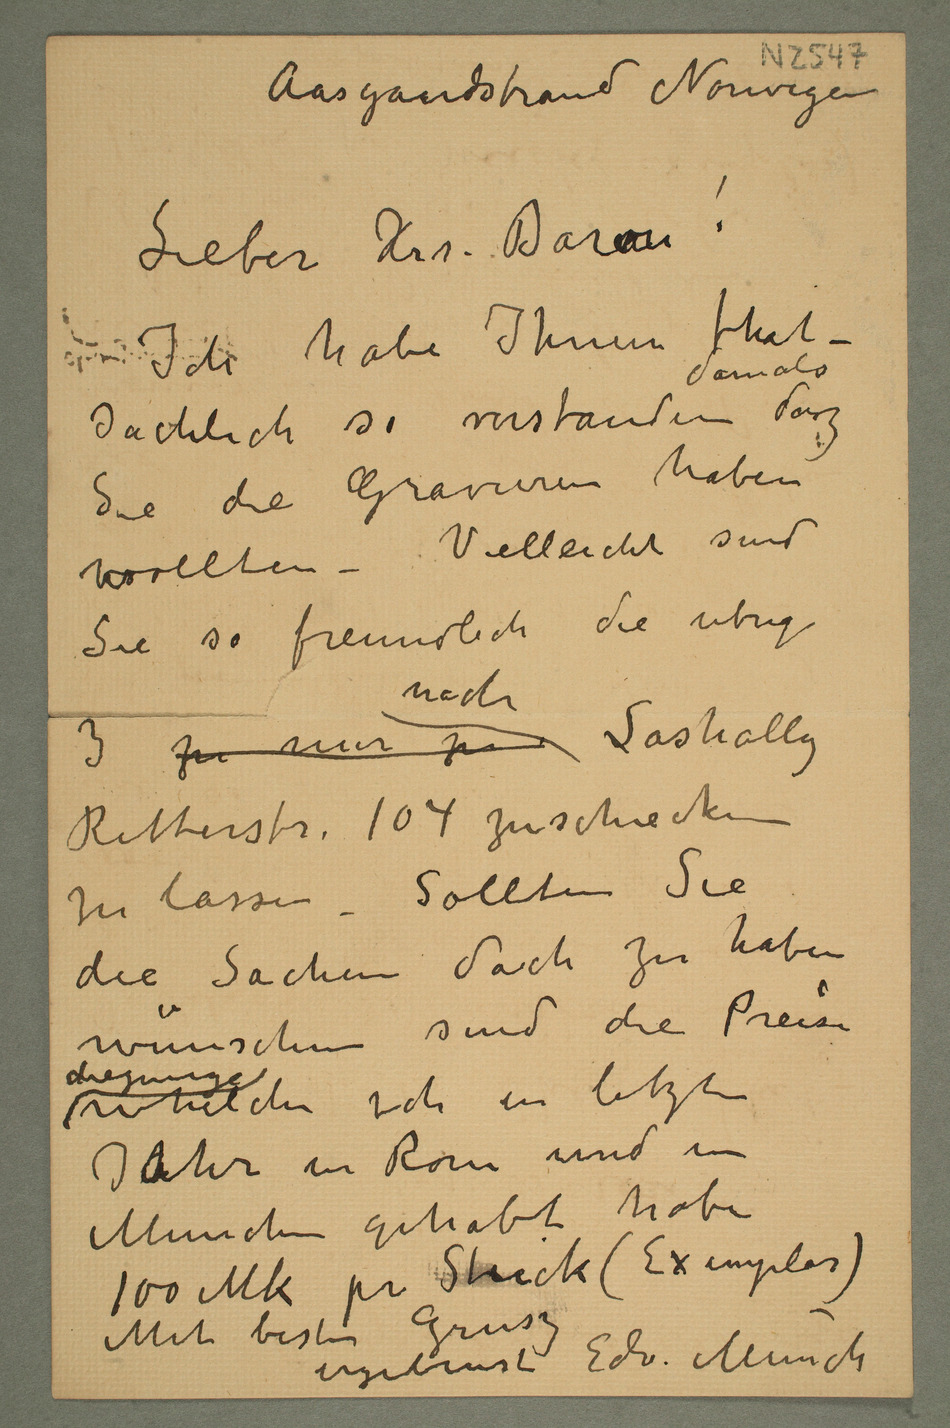 N2547
Aasgaardstrand Norwegen
Lieber Hrr. Baron!
Ich habe Ihnen that-
damals
sächlich so verstanden dasz
Sie die Gravuren haben
wollten – Vielleicht sind
Sie so freundlich die übrig
nach
3 zu mir zu Lashally
Ritterstr. 104 zuschicken
zu lassen – Sollten Sie
die Sachen doch zu haben
wünschen sind die Preise
diejenige
whelche ich in letzten
Jahr in Rom und in
Munchen gehabt habe
100 Mk pr Stück (Exemplar)
Mit besten Grusz
ergebenst Edv. Munch